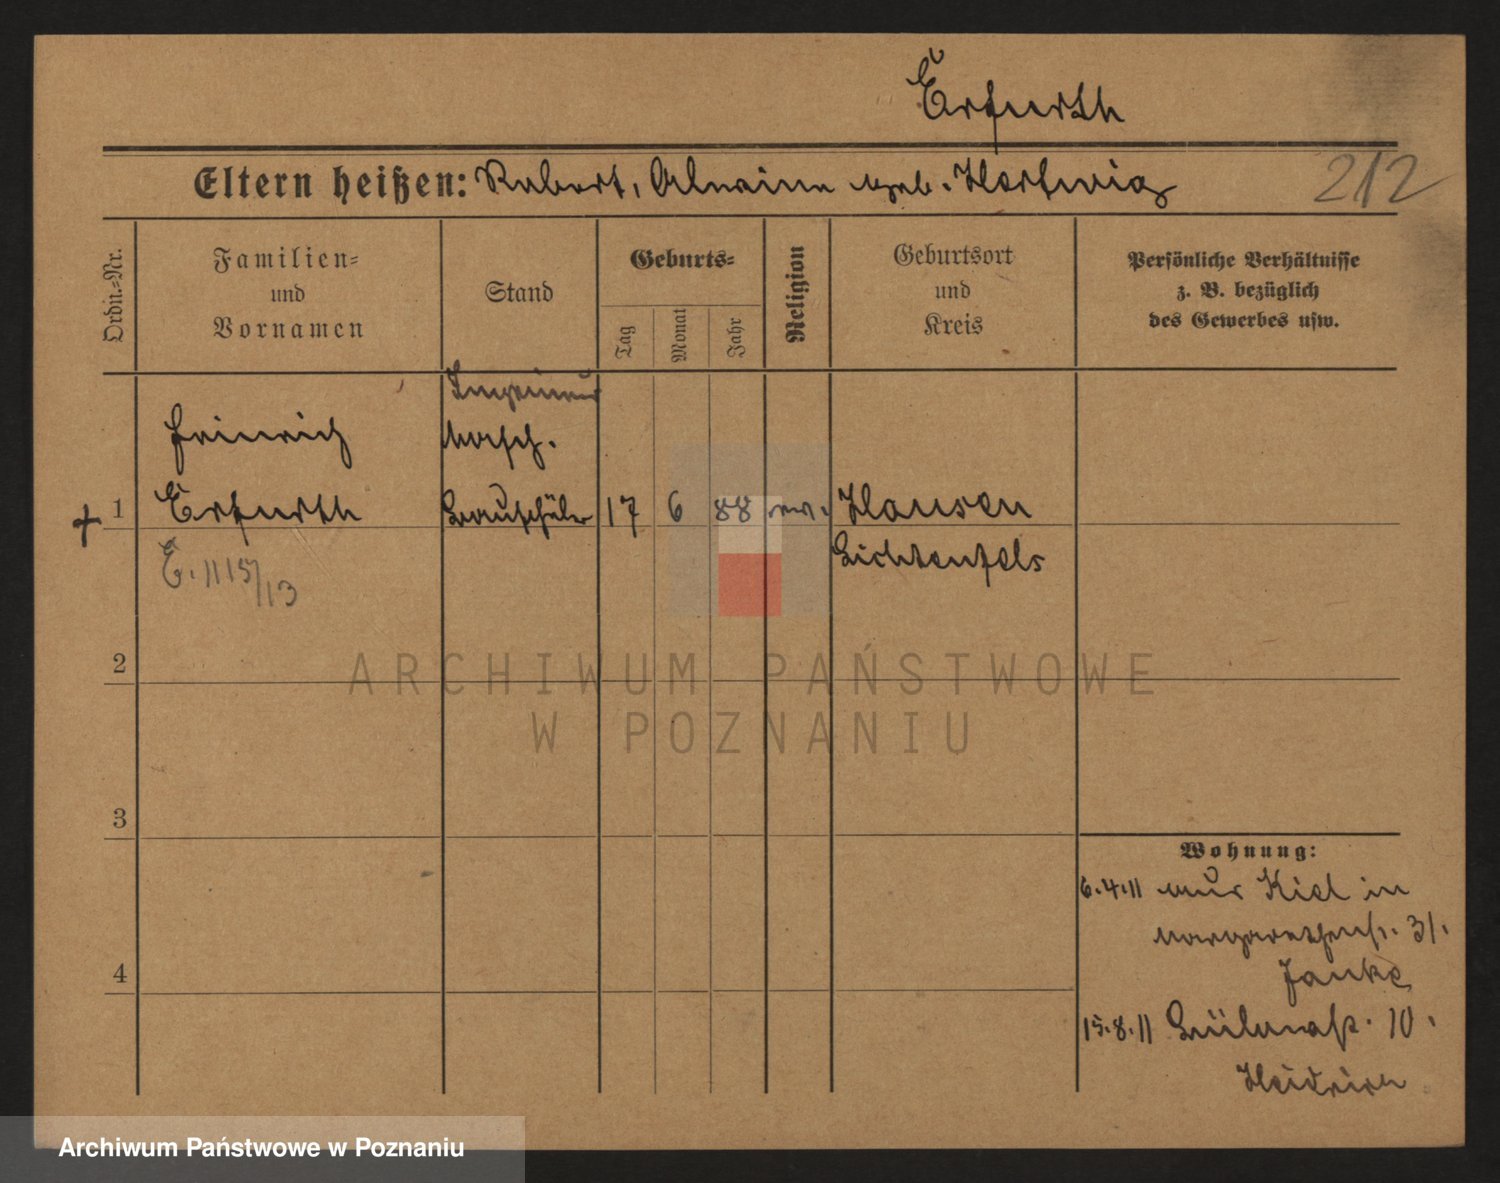 Erfurth
Eltern heißen: Robert, geb. Hartwig
212
Ordn.-Nr.
Familien-
und
Vornamen
Stand
Geburts-
Tag
Monat
Jahr
Religion
Geburtsort
und
Kreis
Persönliche Verhältnisse
z. B. bezüglich
des Gewerbes usw.
Ingenieur
Heinrich
Masch.
1 Erfurth Bauschüler 17 6 88 ev. Hausen
Lichtenfels
E. 1115/13
2
ARCHIWUM PAŃSTWOWE
W POZNANIU
3
4
Wohnung:
6.4.11 aus Kiel in
Margarethenstr. 31.
Janke
15.8.11 10.
Archiwum Państwowe w Poznaniu